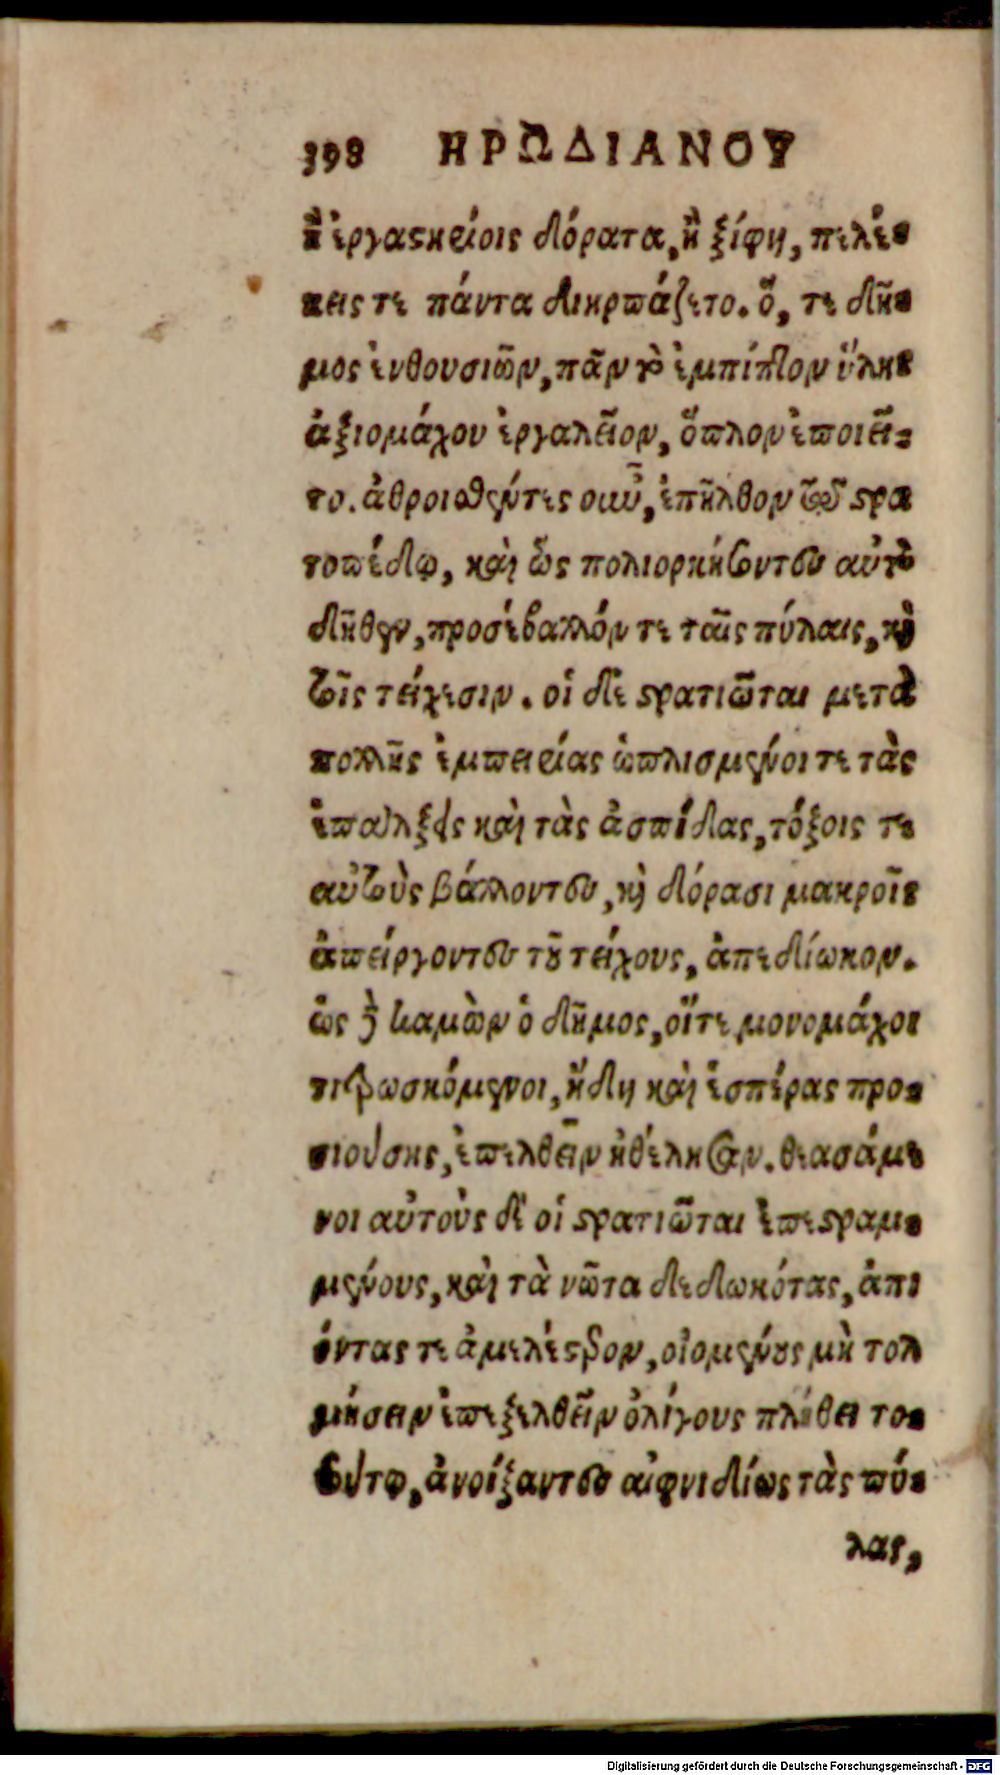 398 ΗΡΩΔΙΑΝΟΥ
ἢ ἐργαστηρίοις δόρατα, ἢ ξίφη, πελέ-
κεις τε πάντα διηρπάζετο. ὅ, τε δῆ-
μος ἐνθουσιῶν, πᾶν τὸ ἐμπίπτον ὕλης
ἀξιομάχου ἐργαλεῖον, ὅπλον ἐποιεῖ-
το. ἀθροισθέντες οὖν, ἐπῆλθον τῷ στρα
τοπέδῳ, καὶ ὡς πολιορκήσοντες αὐτὸ
δῆθεν, προσέβαλλόν τε ταῖς πύλαις, καὶ
τοῖς τείχεσιν. οἱ δὲ στρατιῶται μετὰ
πολλῆς ἐμπειρίας ὡπλισμένοι τε τὰς
ἐπάλξεις καὶ τὰς ἀσπίδας, τόξοις τε
αὐτοὺς βάλλοντες, καὶ δόρασι μακροῖς
ἀπείργοντες τοῦ τείχους, ἀπεδίωκον.
ὡς δὲ καμὼν ὁ δῆμος, οἵτε μονομάχοι
τιτρωσκόμενοι, ἤδη καὶ ἑσπέρας προ-
σιούσης, ἐπελθεῖν ἠθέλησαν. θεασάμε
νοι αὐτοὺς δ' οἱ στρατιῶται ἐπεστραμ-
μένους, καὶ τὰ νῶτα δεδωκότας, ἀπι
όντας τε ἀμελέστερον, οἰομένους μὴ τολ
μήσειν ἐπεξελθεῖν ὀλίγους πλήθει το-
σούτῳ, ἀνοίξαντες αἰφνιδίως τὰς πύ-
λας,
Digitalisierung gefördert durch die Deutsche Forschungsgemeinschaft - DFG